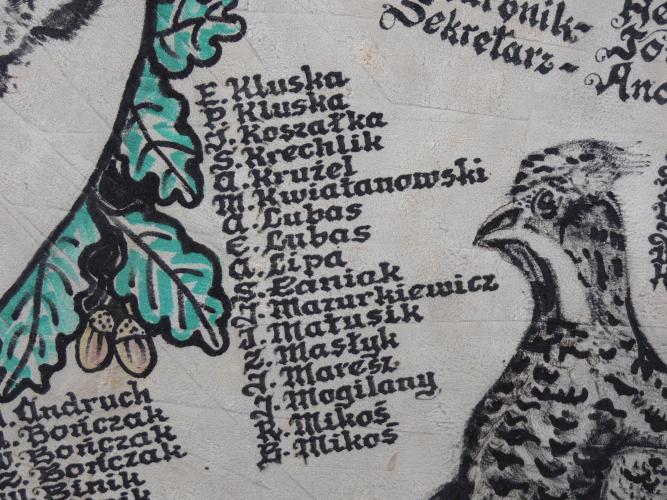 Sekretarz-
E. Kluska
P. Kluska
J. Koszałka
S. Krechlik
A. Krużel
M. Kwiatanowski
A. Lubas
E. Lubas
A. Lipa
S. Łaniak
J. Mazurkiewicz
J. Matusik
Z. Masłyk
J. Maresz
J. Mogilany
R. Mikoś
B. Mikoś
Andruch
Bończak
Bończak
Bończak
Binik